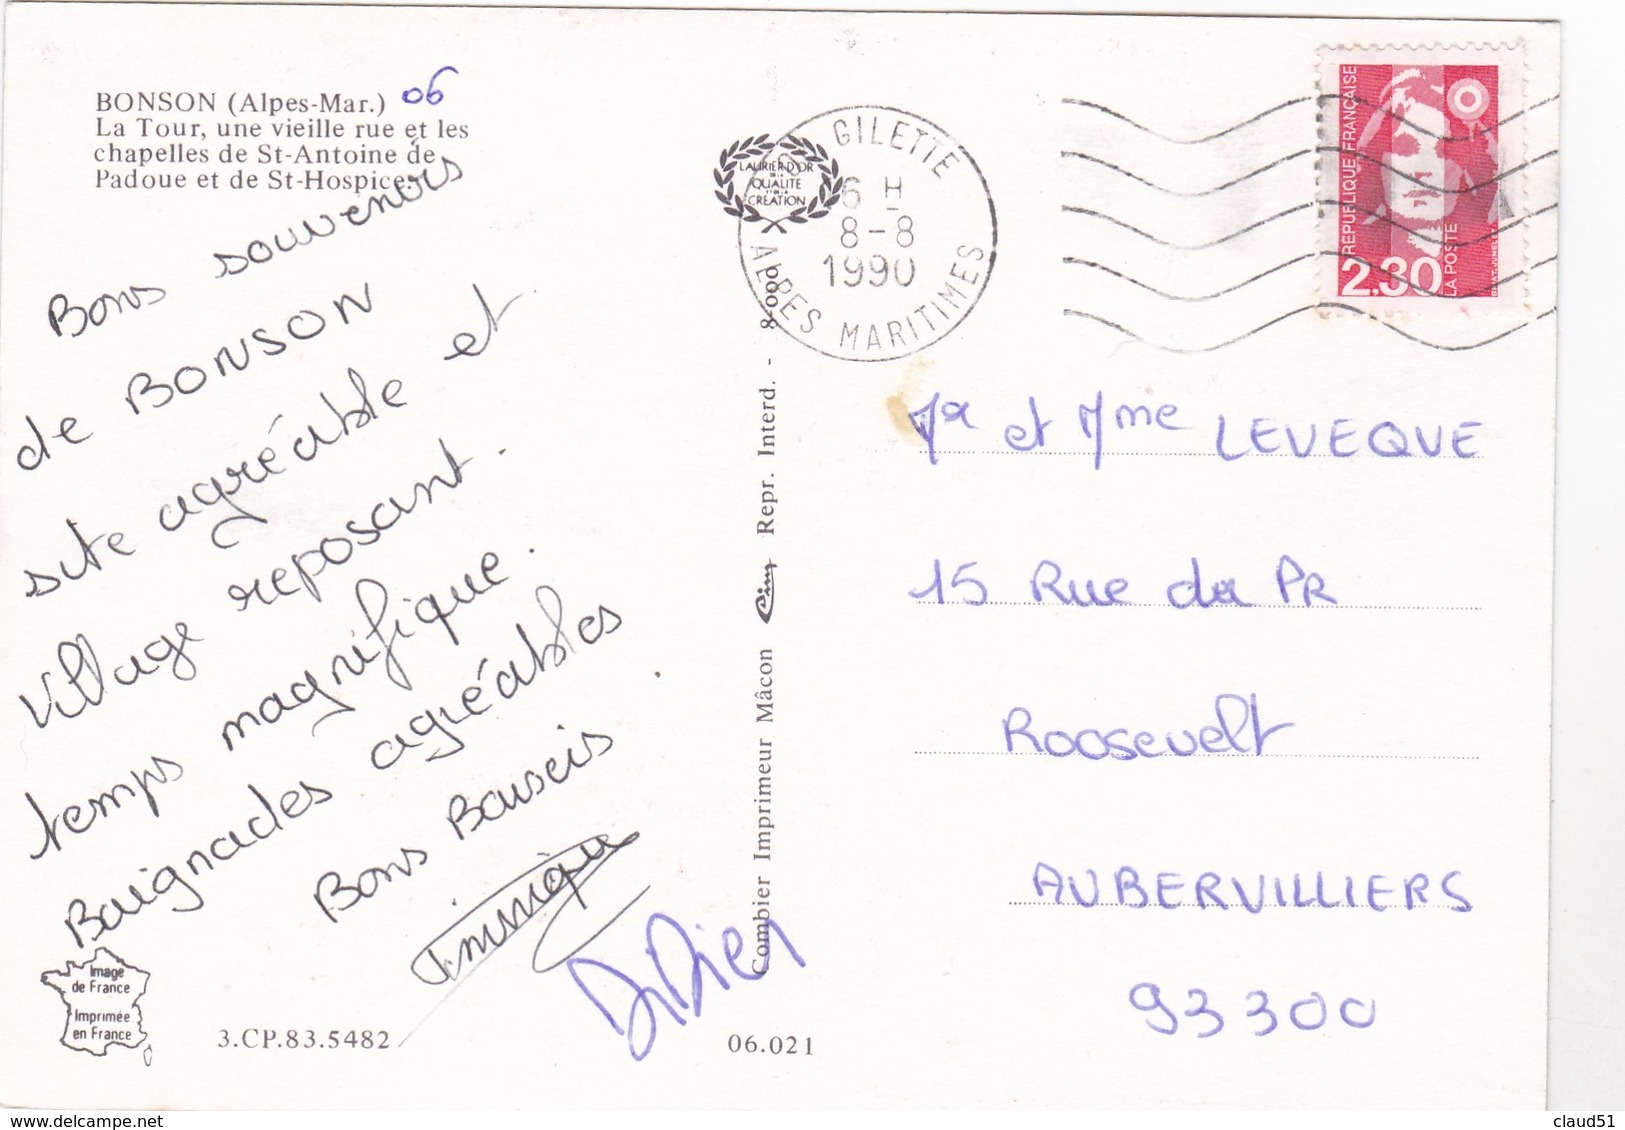 BONSON (Alpes-Mar.) 06
La Tour, une vieille rue et les
chapelles de St-Antoine de
Padoue et de St-Hospice.
Bons souvenirs
de BONSON
site agréable et
village reposant.
temps magnifique.
Baignades agréables.
Bons Baiseis
Didier
Image
de France
Imprimée
en France
3.CP.83.5482
06.021
Combier Imprimeur Mâcon Cim Repr. Interd. - 8-000
LAURIER D'OR
DE LA
QUALITE
ET DE LA
CREATION
GILETTE
6 H
8-8
1990
ALPES MARITIMES
RÉPUBLIQUE FRANÇAISE
2,30
LA POSTE
Mr et Mme LEVEQUE
15 Rue du PR
Roosevelt
AUBERVILLIERS
93300
claud51